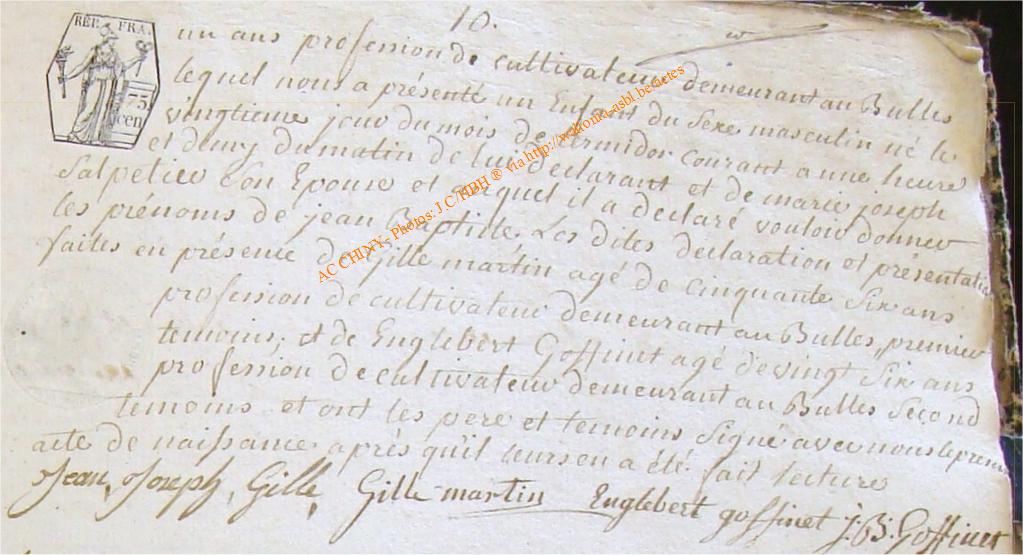 10.
RÉP. FRA.
75
cen
un ans profession de cultivateur demeurant au Bulles
lequel nous a présenté un Enfant du Sexe masculin né le
vingtieme jour du mois de termidor courant a une heure
et demy du matin de lui déclarant et de marie joseph
Salpetier Son Epouse et auquel il a declaré vouloir donner
les prénoms de jean Baptiste. Les dites declaration et présentation
faites en présence de Gille martin agé de cinquante Six ans
profession de cultivateur demeurant au Bulles, premier
temoins, et de Englebert Goffinet agé de vingt Six ans
profession de cultivateur demeurant au Bulles Second
temoins et ont les pere et temoins Signé avec nous le present
acte de naissance après qu'il leurs en a été fait lecture
Jean, Joseph, Gille, Gille martin Englebert goffinet J: B: Goffinet
AC CHINY - Photos: J.C/HBH ® via http://wallonia.asbl.be/actes